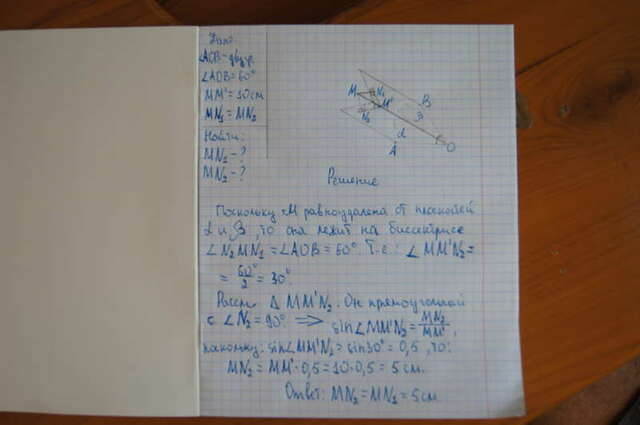 Дано:
∠AOB - двугр.
∠AOB = 60°
MM' = 10 см
MN₁ = MN₂
Найти:
MN₁ - ?
MN₂ - ?
M N₁ M' B
N₂ β
α
A O
Решение
Поскольку M равноудалена от плоскостей
α и β, то она лежит на биссектрисе
∠N₂MN₁ = ∠AOB = 60°. Т.е.: ∠MM'N₂ =
= 60°/2 = 30°.
Рассм. Δ MM'N₂. Он прямоугольный
с ∠N₂ = 90° ⟹ sin∠MM'N₂ = MN₂/MM',
поскольку: sin∠MM'N₂ = sin30° = 0,5, то:
MN₂ = MM'·0,5 = 10·0,5 = 5 см.
Ответ: MN₂ = MN₁ = 5 см